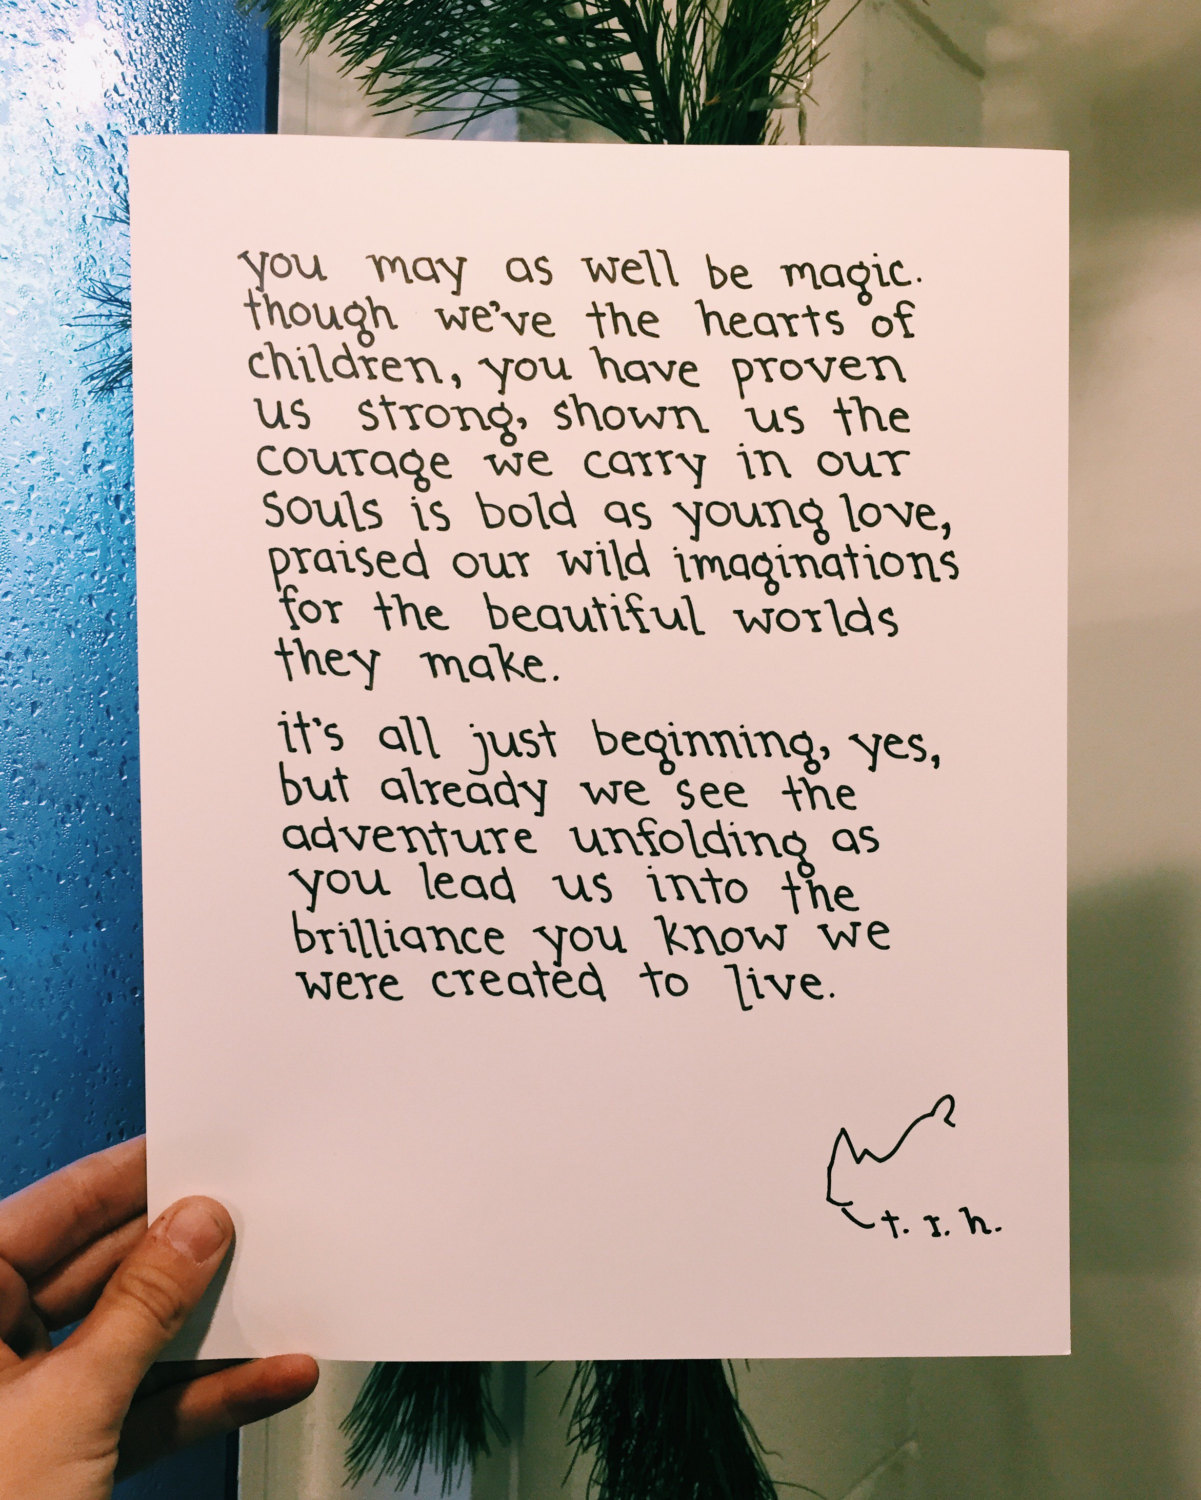 you may as well be magic.
though we've the hearts of
children, you have proven
us strong, shown us the
courage we carry in our
souls is bold as young love,
praised our wild imaginations
for the beautiful worlds
they make.
it's all just beginning, yes,
but already we see the
adventure unfolding as
you lead us into the
brilliance you know we
were created to live.
t. r. h.